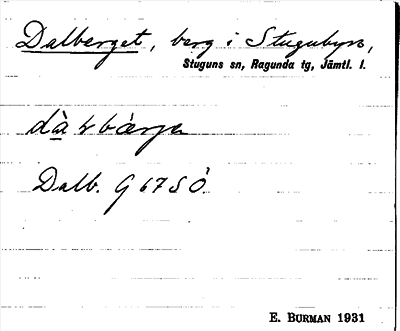 Dalberget, berg i Stugubyn,
Stuguns sn, Ragunda tg, Jämtl. l.
Dalb. G 67 S Ö
E. BURMAN 1931